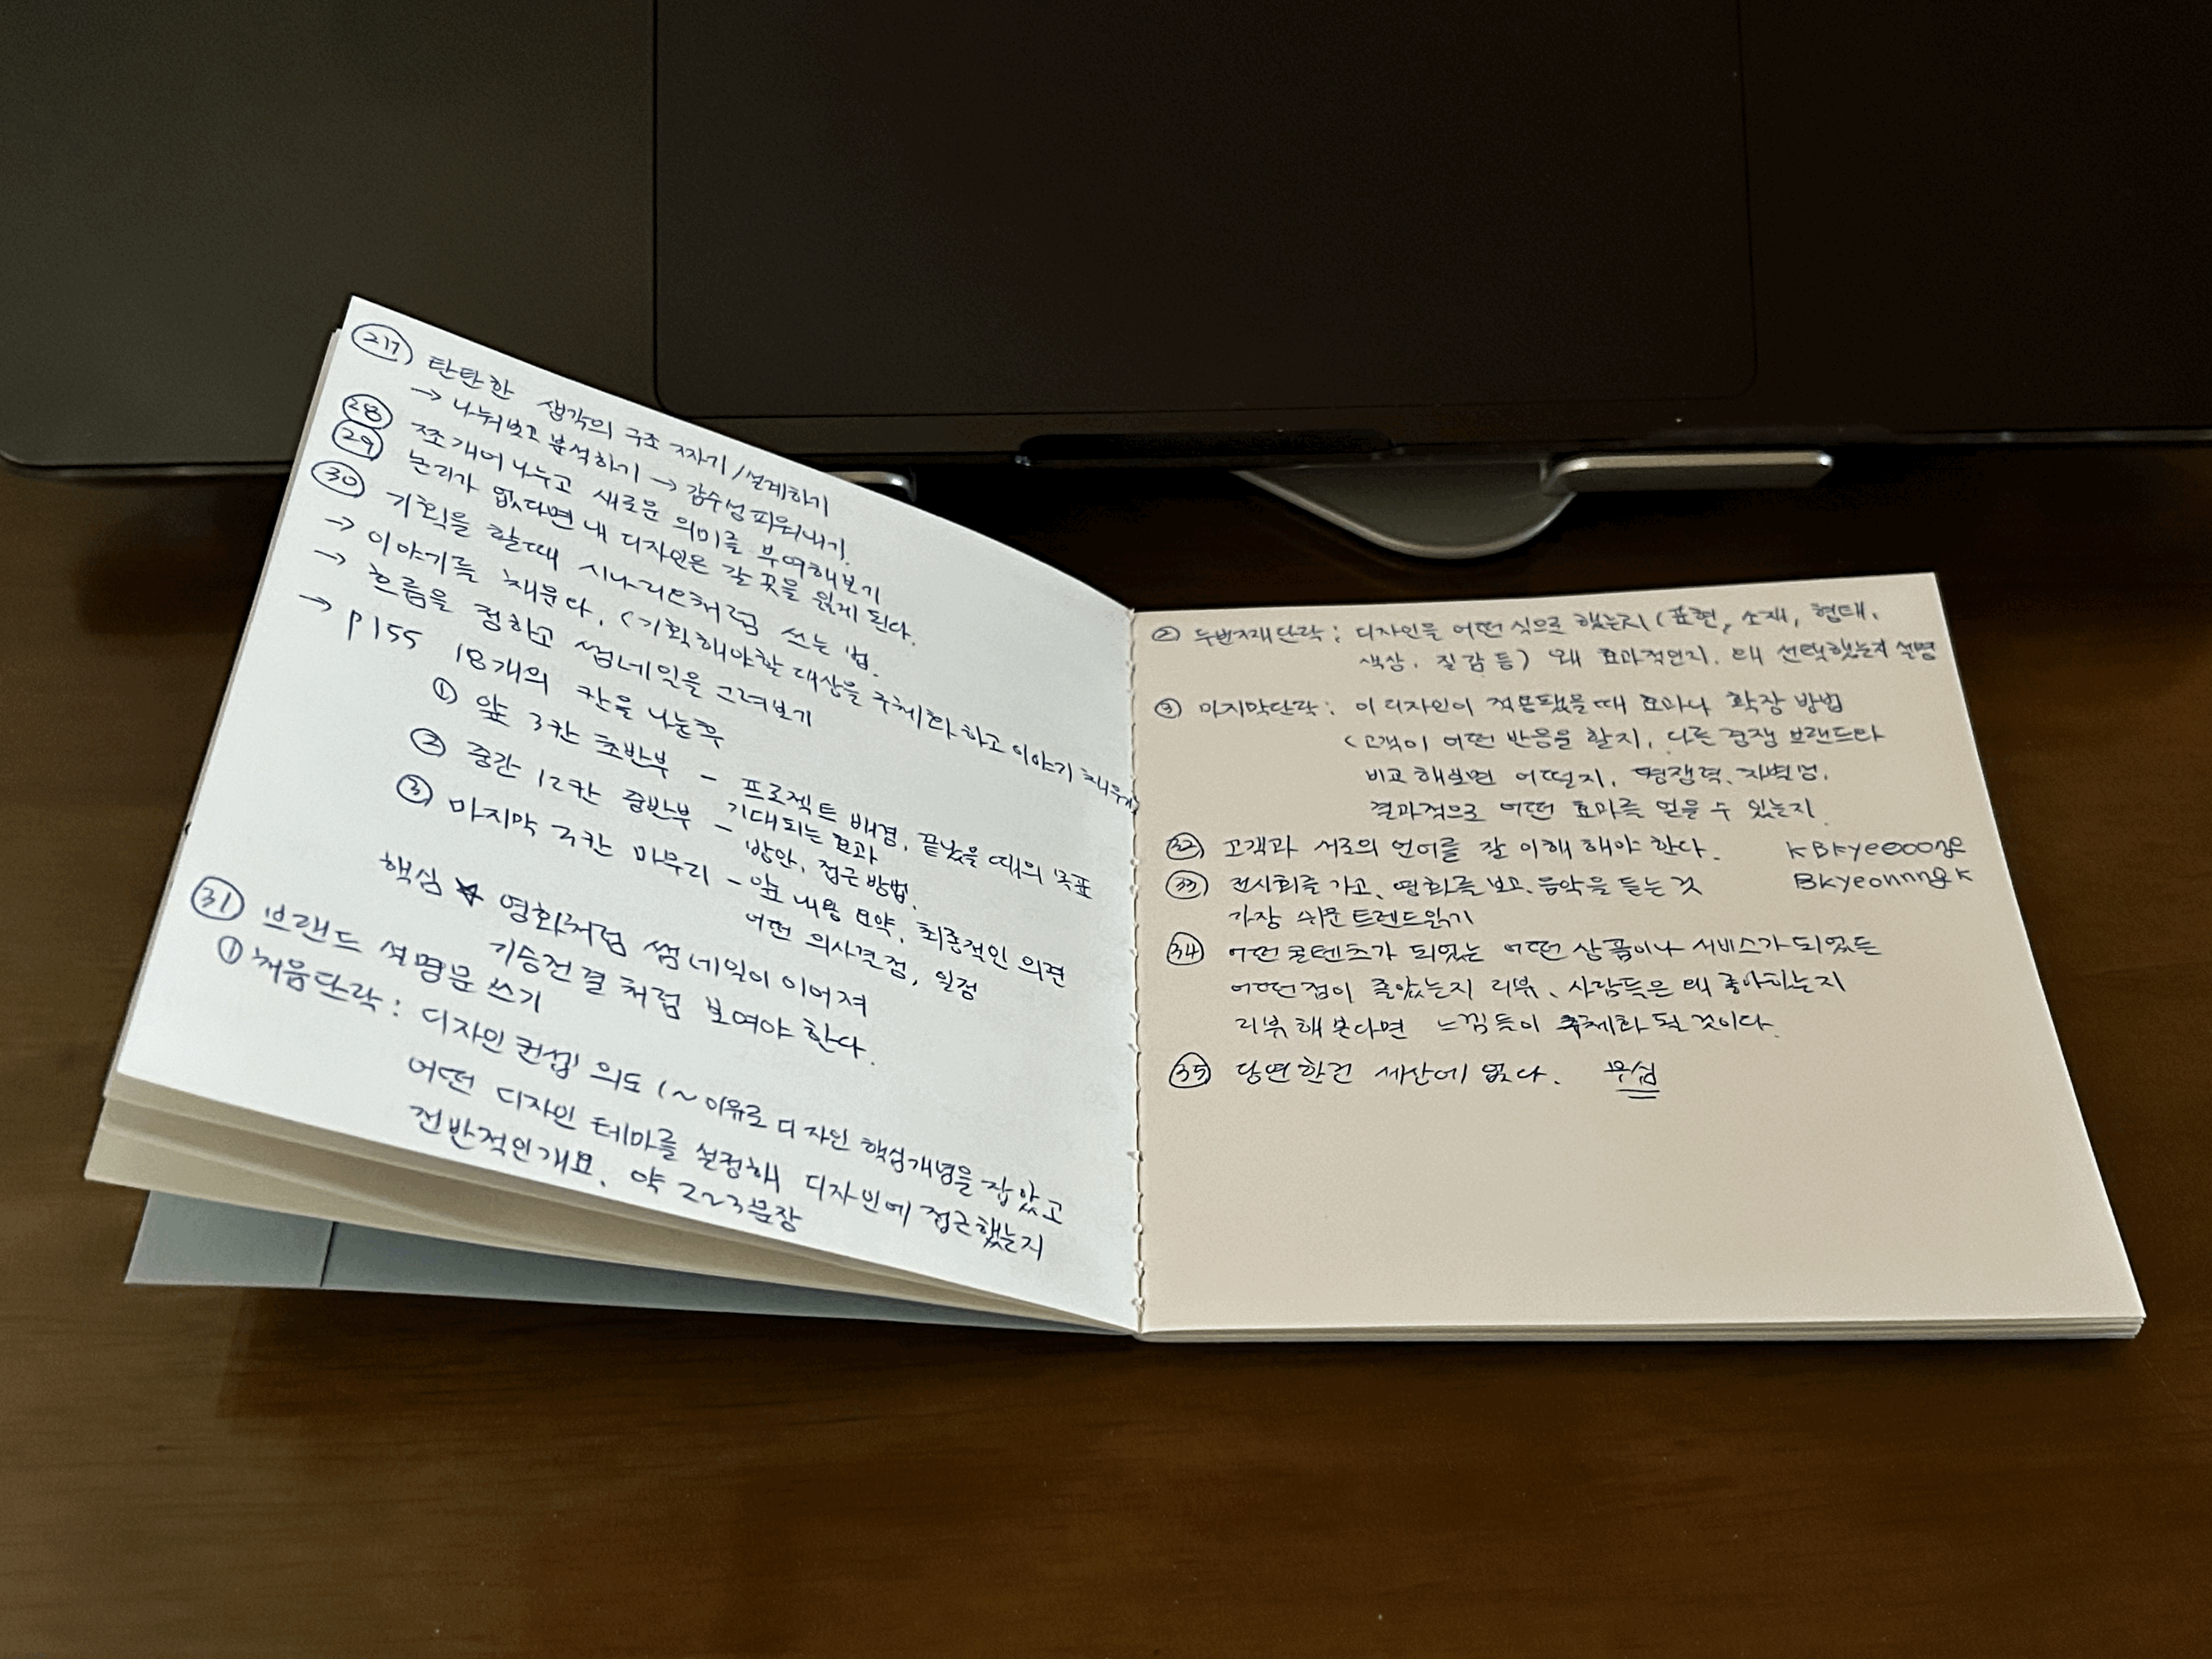 27 탄탄한 생각의 구조 짜기 / 설계하기
→ 나눠보고 분석하기 → 감수성 피워내기.
28 쪼개어 나누고 새로운 의미를 부여해보기
29 논리가 없다면 내 디자인은 갈 곳을 잃게 된다.
30 기획을 할때 시나리오처럼 쓰는 법.
→ 이야기를 채운다. (기획해야할 대상을 구체화 하고 이야기 채우기
→ 흐름을 정하고 썸네일을 그려보기
→ P155 18개의 칸을 나눈후
① 앞 3칸 초반부 - 프로젝트 배경, 끝났을 때의 목표
기대되는 효과
② 중간 12칸 중반부 - 방안, 접근 방법.
③ 마지막 3칸 마무리 - 앞 내용 요약, 최종적인 의견
어떤 의사결정, 일정
핵심 ☆ 영화처럼 썸네일이 이어져
기승전결 처럼 보여야 한다.
31 브랜드 설명문 쓰기
① 처음단락 : 디자인 컨셉, 의도 (~ 이유로 디자인 핵심개념을 잡았고
어떤 디자인 테마를 설정해 디자인에 접근했는지
전반적인 개요. 약 2~3문장
② 두번째단락 : 디자인을 어떤 식으로 했는지 (표현, 소재, 형태,
색상, 질감 등) 왜 효과적인지. 왜 선택했는지 설명
③ 마지막단락 : 이 디자인이 적용됐을 때 효과나 확장 방법
(고객이 어떤 반응을 할지, 다른 경쟁 브랜드와
비교 해보면 어떨지, 경쟁력, 차별성.
결과적으로 어떤 효과를 얻을 수 있는지
32 고객과 서로의 언어를 잘 이해 해야 한다.
33 전시회를 가고, 영화를 보고, 음악을 듣는 것
가장 쉬운 트렌드읽기
34 어떤 콘텐츠가 되었든 어떤 상품이나 서비스가 되었든
어떤점이 좋았는지 리뷰, 사람들은 왜 좋아하는지
리뷰 해 본다면 느낌들이 구체화 될 것이다.
35 당연한건 세상에 없다.